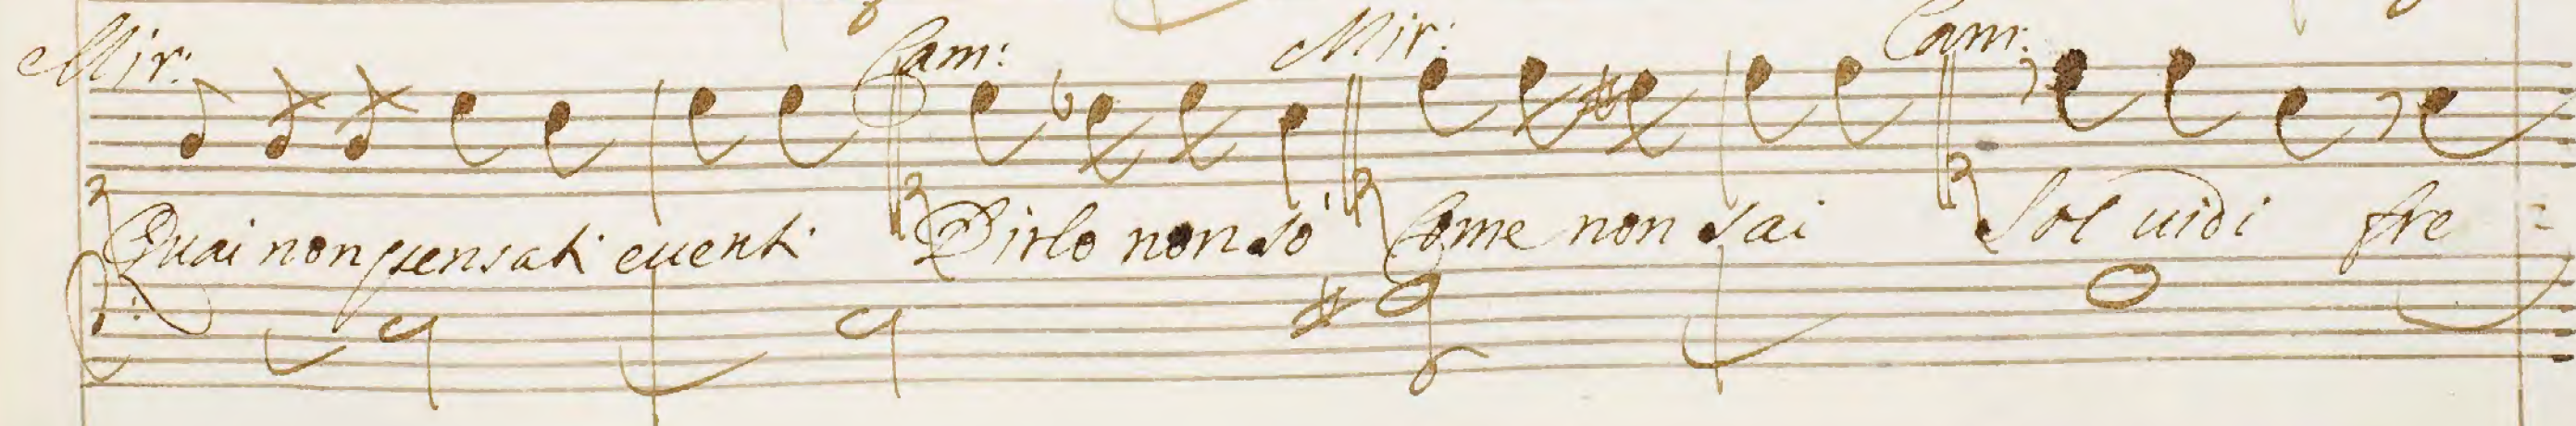 Mir: Cam: Mir: Cam:
Quai non pensati euenti Dirlo non sò Come non sai Sol uidi fre =
6